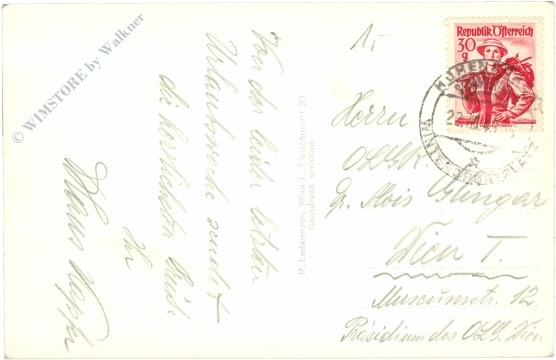 © WIMSTORE by Walkner
Von der leider letzten
Urlaubswoche sendet
die herzlichsten Grüße
Ihr
Hans
P. Ledermann, Wien I., Fleischmarkt 20
Nachdruck verboten
1,-
Republik Österreich
30
g
Herrn
OLGR.
Dr. Alois
Wien I.
Museumstr. 12
Präsidium des OLG. Wien